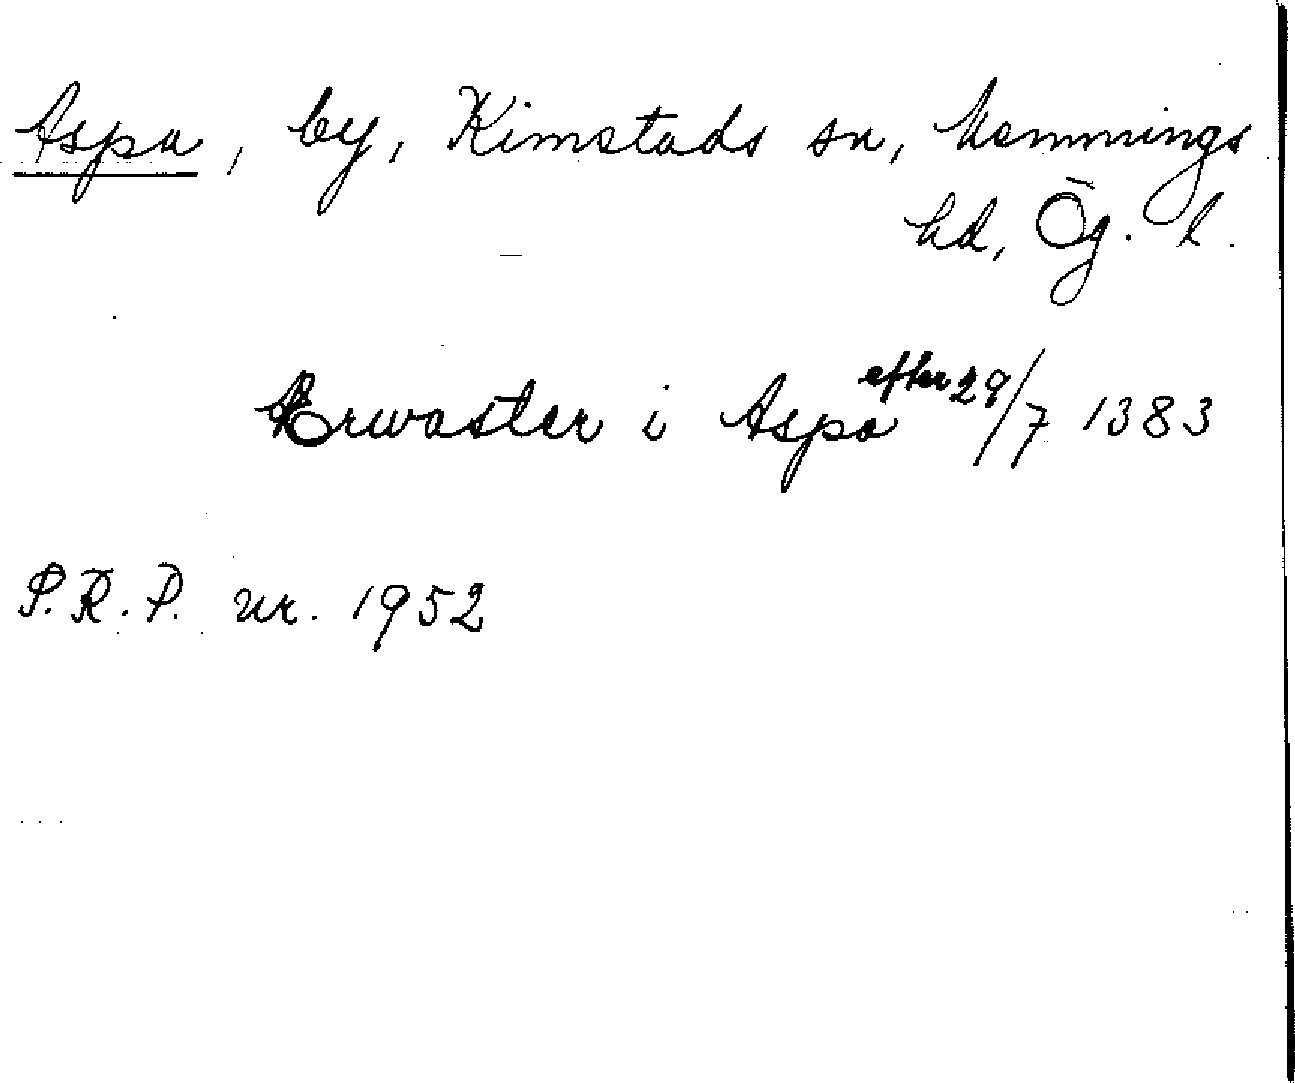 Aspa, by, Kimstads sn, Memmings
hd, Ög. l.
Erwaster i Aspa efter 29/7 1383
S.R.P. nr. 1952